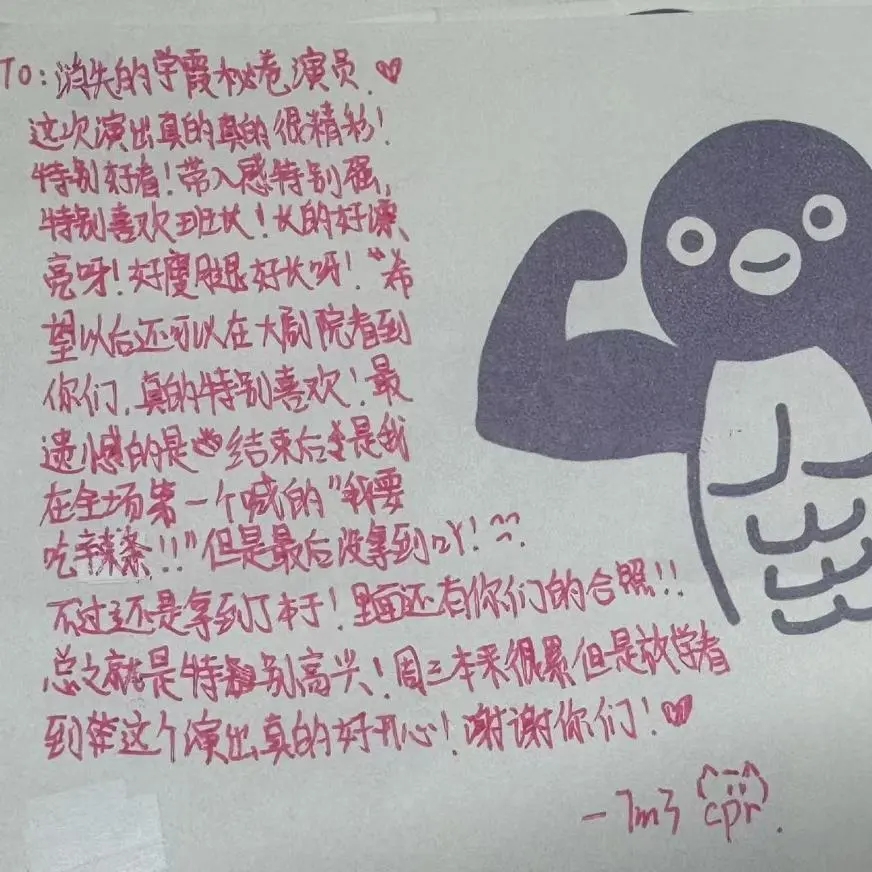 To：消失的学霞秘卷演员.♡
这次演出真的真的很精彩！
特别好看！带入感特别强，
特别喜欢班长！长的好漂
亮呀！好瘦腿好长呀！希
望以后还可以在大剧院看到
你们，真的特别喜欢！最
遗憾的是 结束后是我
在全场第一个喊的“我要
吃辣条!!”但是最后没拿到吖！^^.
不过还是拿到了本子！里面还有你们的合照!!
总之就是特别高兴！周三本来很累但是放学看
到 这个演出真的好开心！谢谢你们！♡
cpr